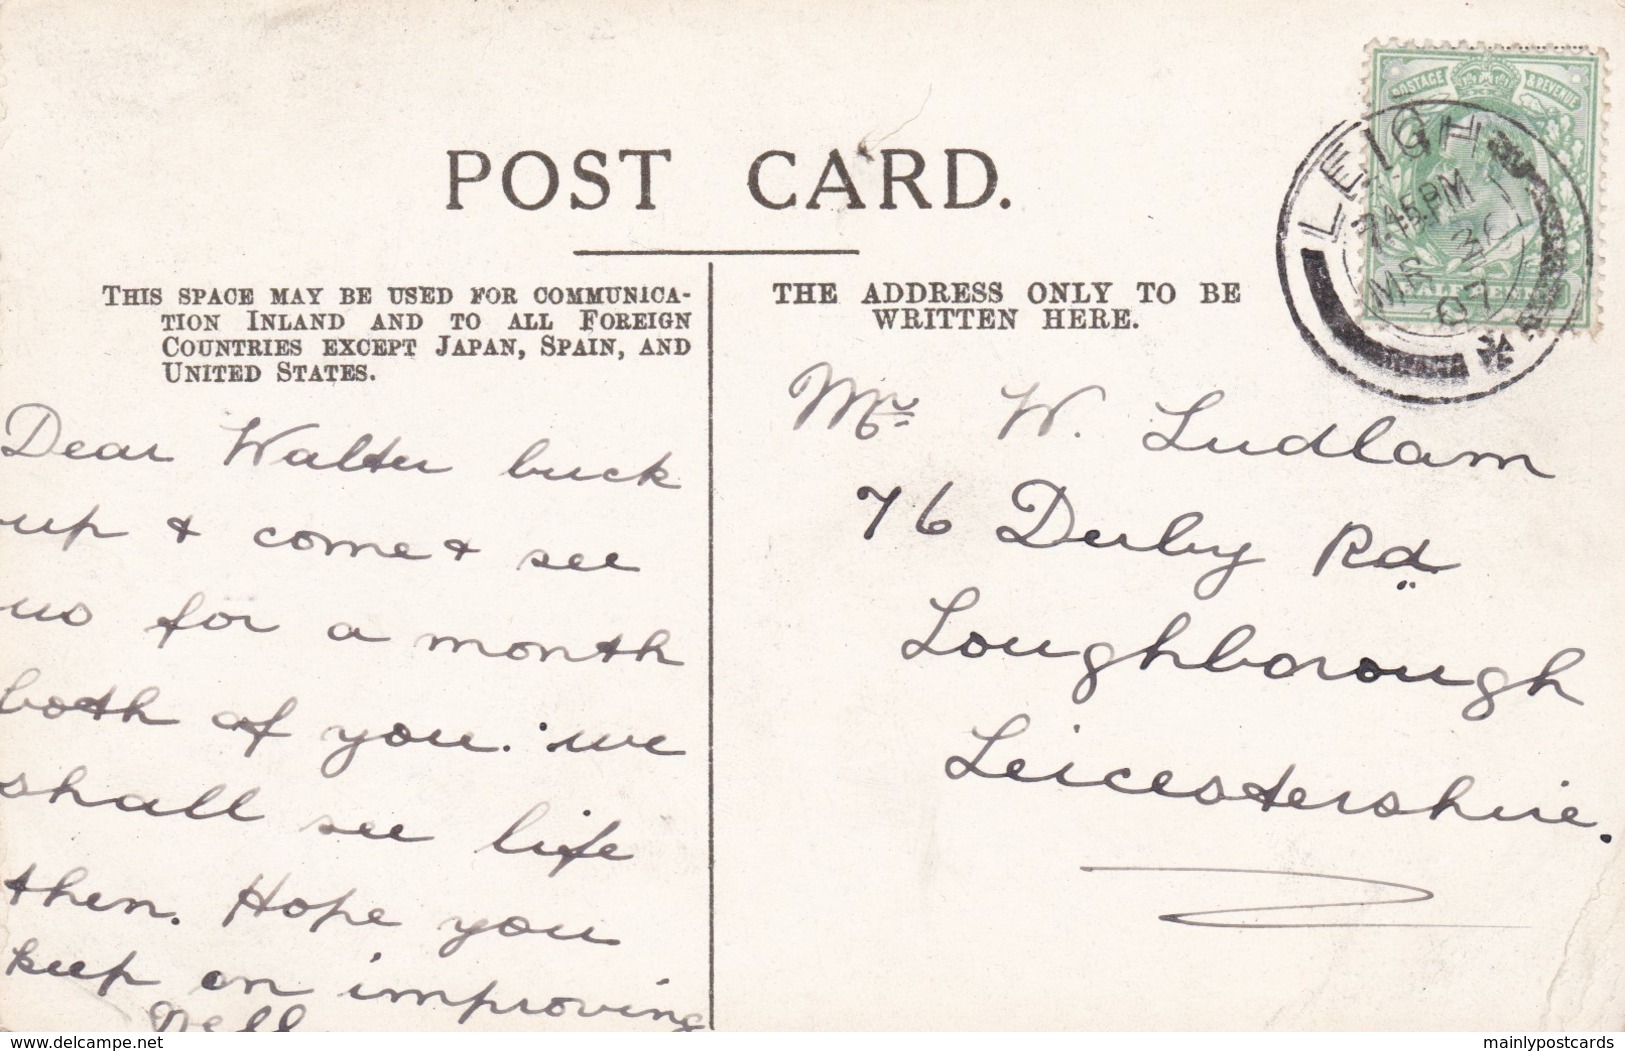 POSTAGE & REVENUE
LEIGH
7.45.PM
MR 30
07
POST CARD.
THIS SPACE MAY BE USED FOR COMMUNICA-
TION INLAND AND TO ALL FOREIGN
COUNTRIES EXCEPT JAPAN, SPAIN, AND
UNITED STATES.
THE ADDRESS ONLY TO BE
WRITTEN HERE.
Dear Walter buck
up & come & see
us for a month
both of you. we
shall see life
then. Hope you
keep on improving
Nell
Mr W. Ludlam
76 Derby Rd
Loughborough
Leicestershire.
delcampe.net
mainlypostcards